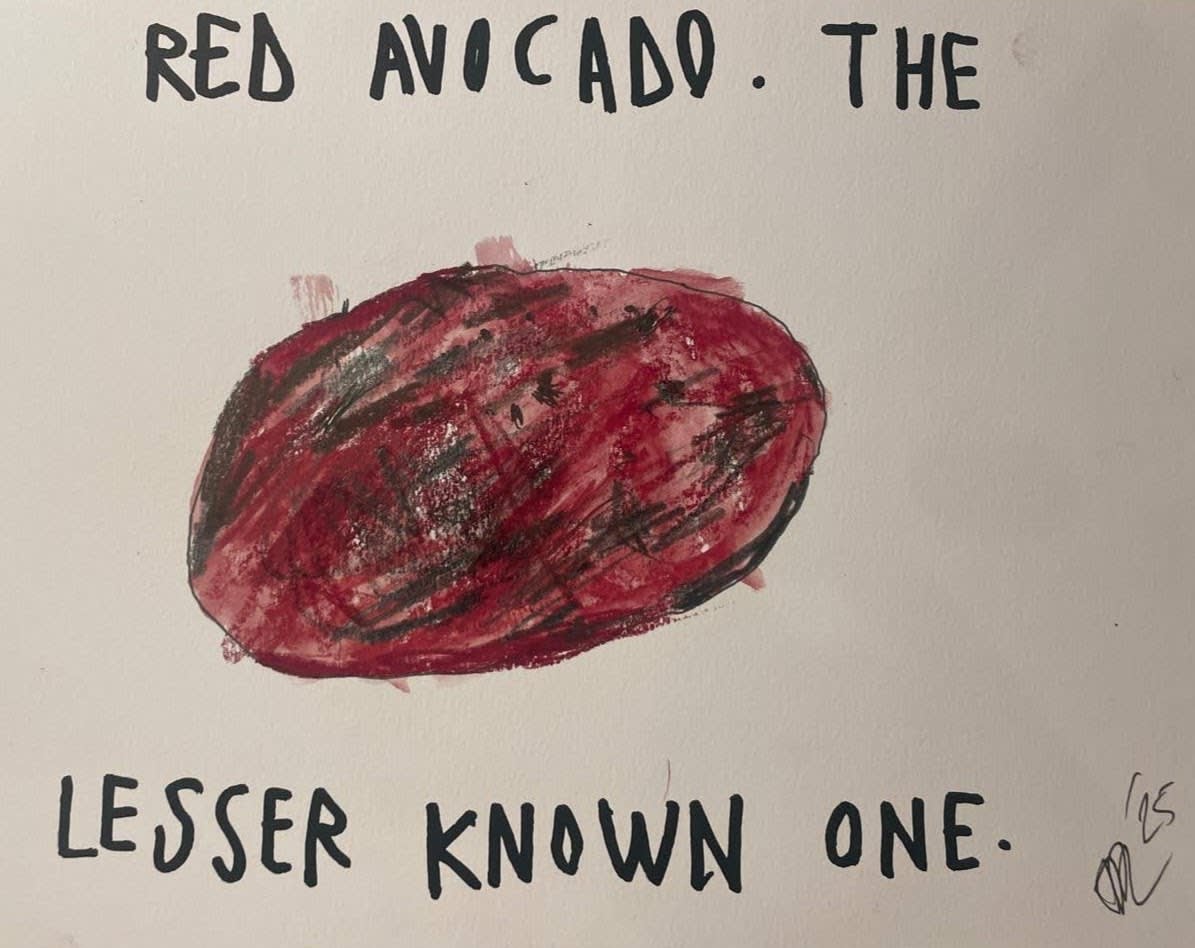 RED AVOCADO. THE
LESSER KNOWN ONE.
'25